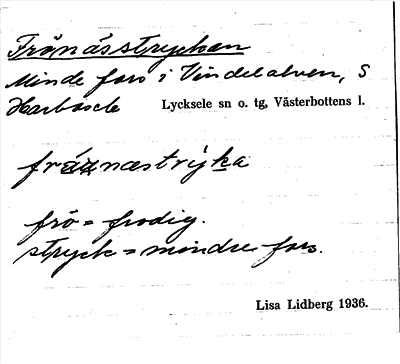 Frönässtrycken
Minde fors i Vindelälven, S
Harbäcks Lycksele sn o. tg, Västerbottens l.
frö = frodig.
stryck = mindre fors.
Lisa Lidberg 1936.